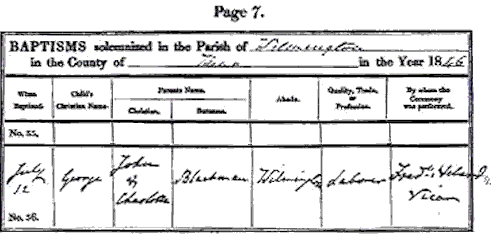 Page 7.
BAPTISMS solemnized in the Parish of Wilmington
in the County of in the Year 1846
When Baptized. Child's Christian Name. Parents Name. Abode. Quality, Trade, or Profession. By whom the Ceremony was performed.
Christian. Surname.
No. 55.
July 12 George John & Charlotte Blackman Wilmington Labourer Fred. Vicar
No. 56.